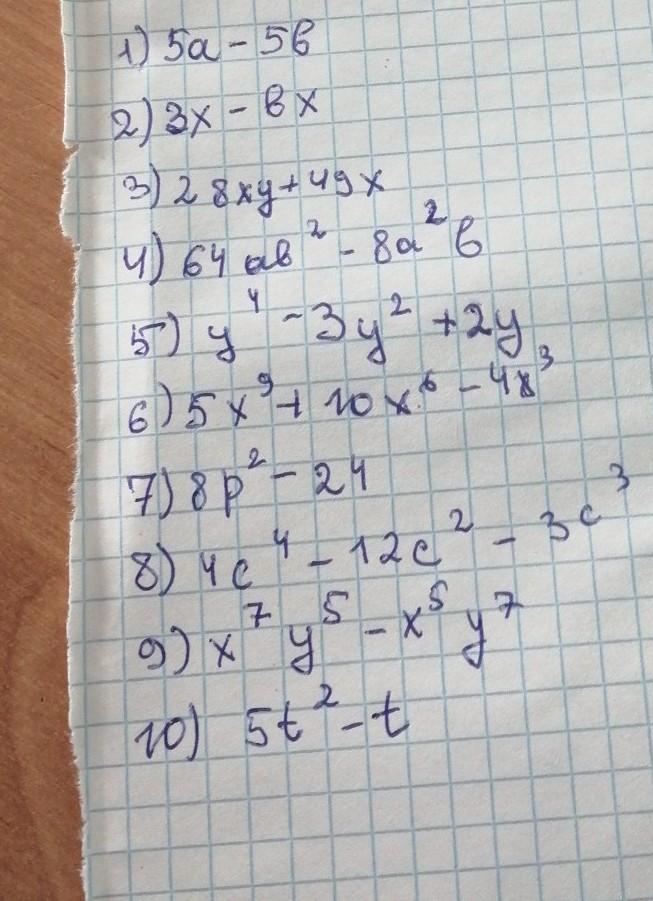 1) 5a - 5b
2) 3x - bx
3) 28xy + 49x
4) 64ab² - 8a²b
5) y⁴ - 3y² + 2y
6) 5x⁹ + 10x⁶ - 4x³
7) 8p² - 24
8) 4c⁴ - 12c² - 3c³
9) x⁷y⁵ - x⁵y⁷
10) 5t² - t